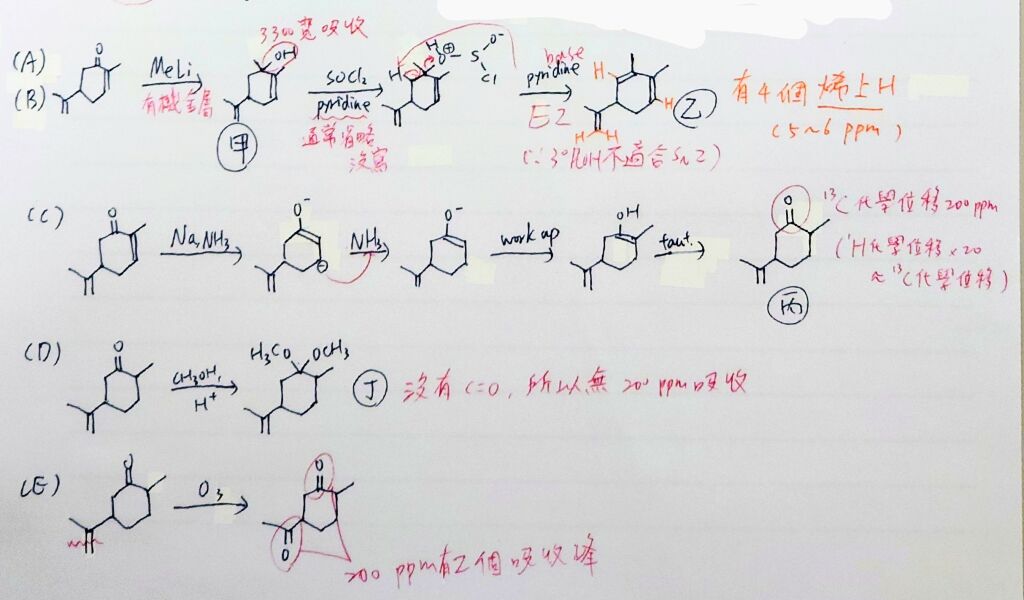 3300寬吸收
(A)
(B)
O
MeLi
有機金屬
OH
甲
SOCl₂
pyridine
通常省略
沒寫
H
H
O⊕
S
O⁻
Cl
base
pyridine
E2
(∵3°ROH不適合SN2)
H
H
H H
乙
有4個烯上H
(5~6 ppm)
(C)
O
Na, NH₃
O⁻
⊖
NH₃
O⁻
work up
OH
taut.
O
丙
¹³C化學位移200 ppm
(¹H化學位移×20
≈ ¹³C化學位移)
(D)
O
CH₃OH,
H⁺
H₃CO OCH₃
丁
沒有C=O, 所以無200 ppm吸收
(E)
O
O₃
O
O
200 ppm有2個吸收峰